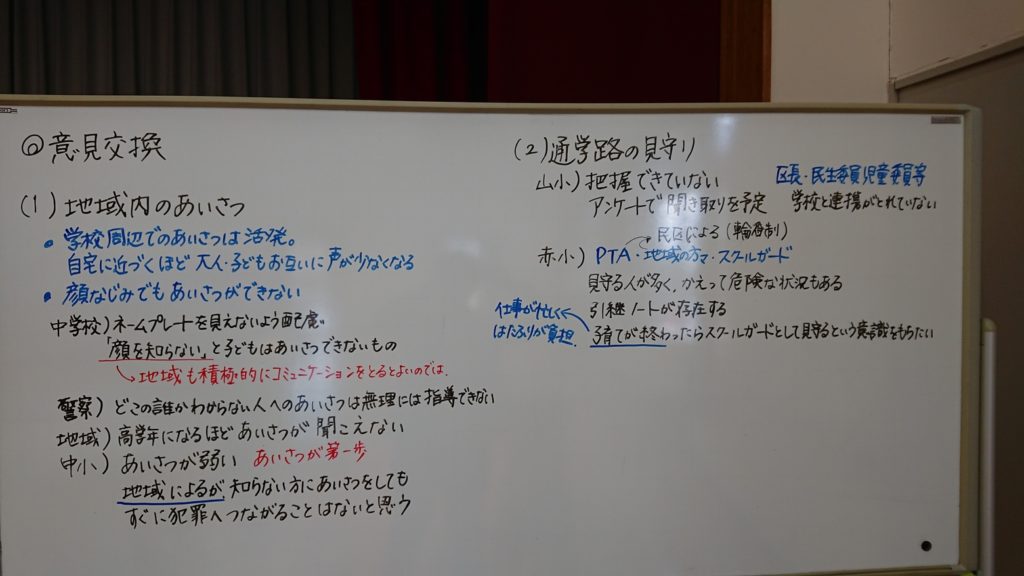 ◎意見交換
(1)地域内のあいさつ
・学校周辺でのあいさつは活発。
自宅に近づくほど大人・子どもお互いに声が少なくなる
・顔なじみでもあいさつができない
中学校)ネームプレートを見えないよう配慮。
「顔を知らない」と子どもはあいさつできないもの
↳地域も積極的にコミュニケーションをとるとよいのでは。
警察)どこの誰かわからない人へのあいさつは無理には指導できない
地域)高学年になるほどあいさつが聞こえない
中小)あいさつが弱い あいさつが第一歩
地域によるが、知らない方にあいさつをしても
すぐに犯罪へつながることはないと思う
(2)通学路の見守り
山小)把握できていない
アンケートで聞き取りを予定
区長・民生委員児童委員等
学校と連携がとれていない
民区による(輪番制)
赤小)PTA・地域の方々・スクールガード
見守る人が多く、かえって危険な状況もある
引継ノートが存在する
子育てが終わったらスクールガードとして見守るという意識をもちたい
仕事が忙しく
はたふりが負担